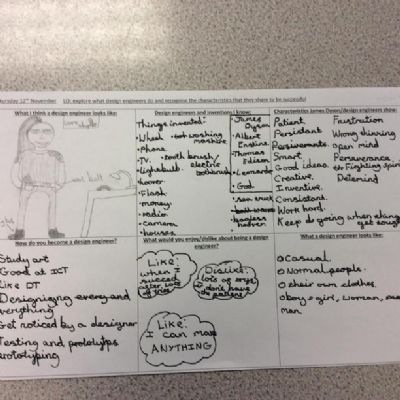 Thursday 12th November LO: explore what design engineers do and recognise the characteristics that they share to be successful
What I think a design engineer looks like:
Design engineers and inventions I know:
Things invented:
• Wheel
• phone
• TV.
• lightbulb
• hoover
• Flash
• money
• radio
• camera
• houses
• tooth brush/
electric
toothbrush
James
Dyson
• Albert
• Thomas
Edison
• God
Characteristics James Dyson/design engineers show:
Patient
Persistant
Smart
Good ideas
Creative.
Inventive.
Consistant.
Work hard.
Keep on going when things
get tough
Frustration
Wrong thinking
open mind
Perseverance
or Fighting spirit
How do you become a design engineer?
Study art
Good at ICT
Like DT
Designing every and
everything
Get noticed by a designer
Testing and
prototyping
What would you enjoy/dislike about being a design engineer?
Like:
when I
succeed
after lots
of tries
Dislike:
lots of trys
I don't have
the patience
Like:
I can make
ANYTHING
What a design engineer looks like:
Casual
Normal people.
their own clothes.
boy, girl, woman,
man.